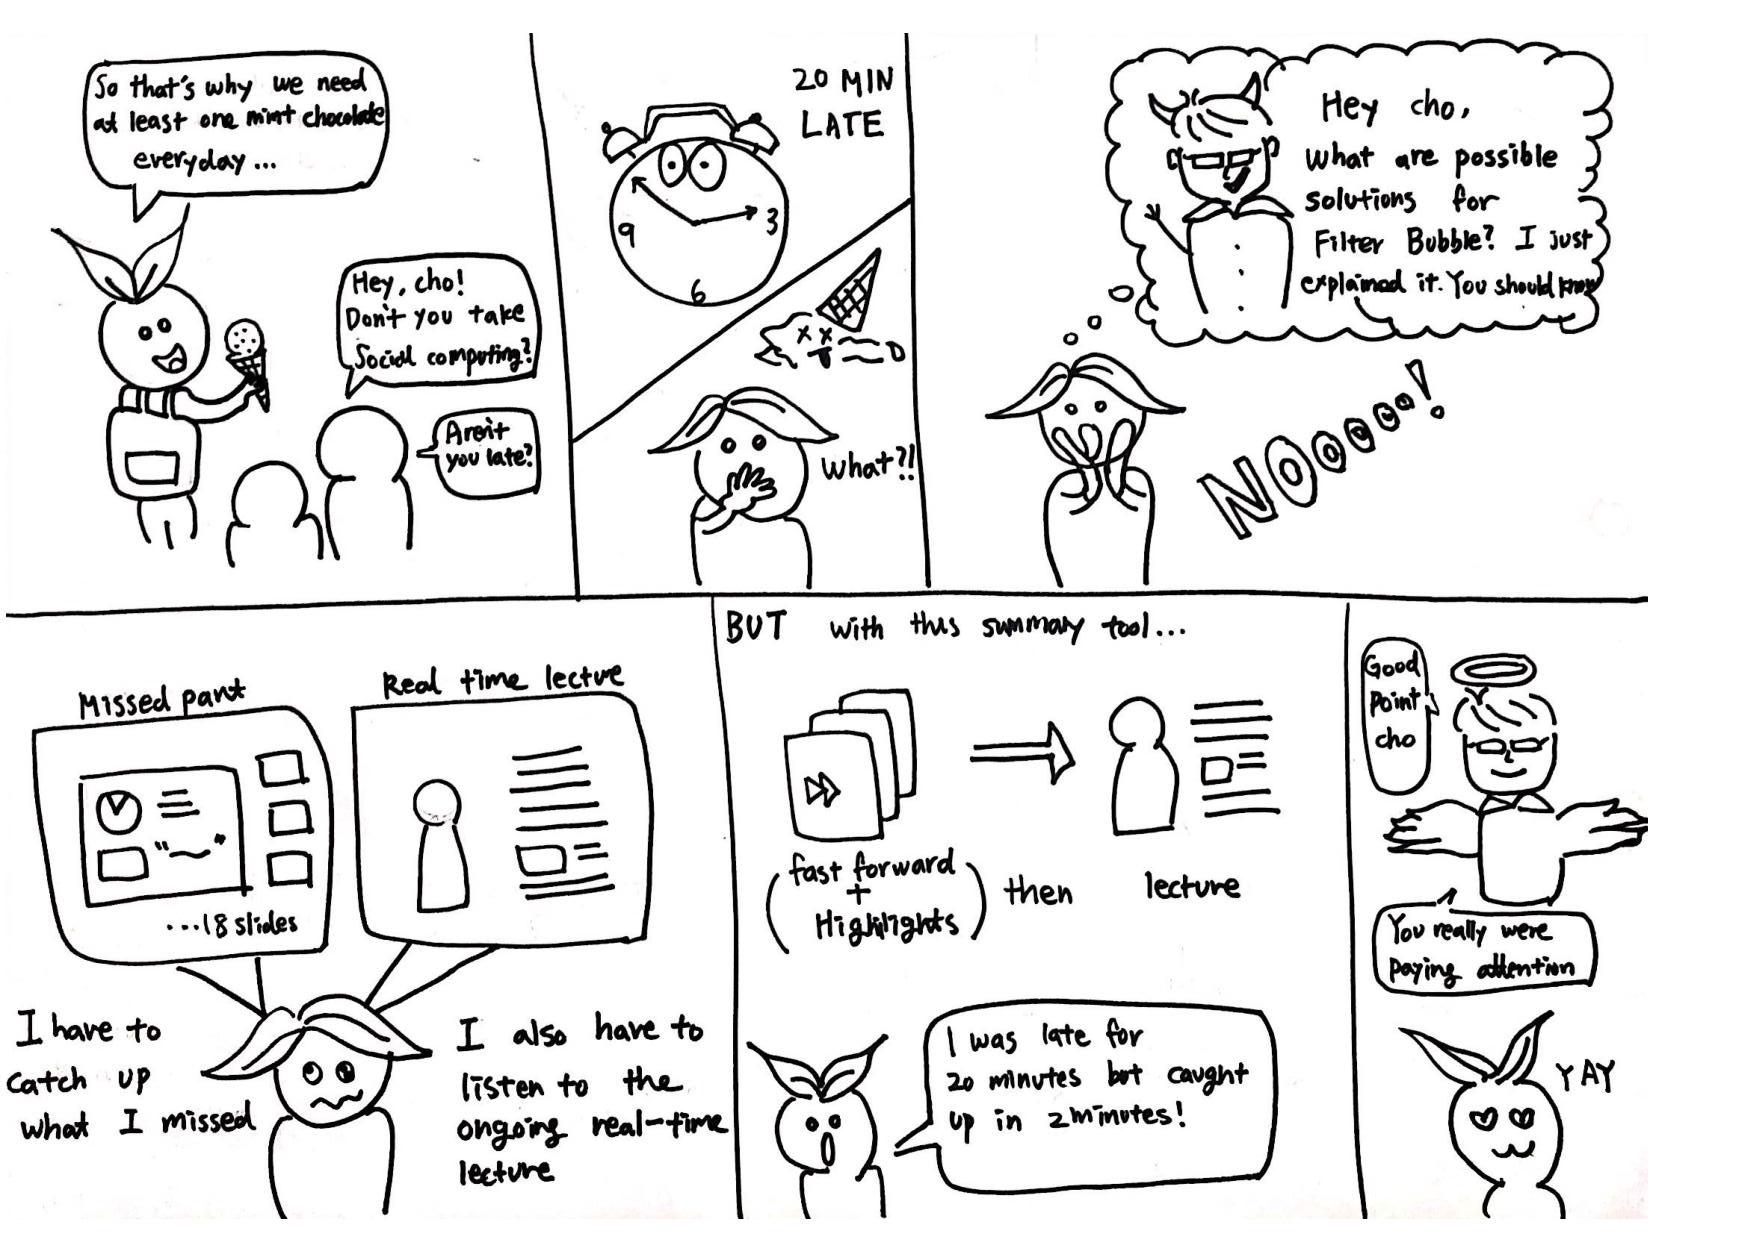 So that's why we need
at least one mint chocolate
everyday...
Hey, cho!
Don't you take
Social computing?
Aren't
you late?
20 MIN
LATE
9
3
6
What?!
Hey cho,
What are possible
solutions for
Filter Bubble? I just
explained it. You should know
NOoooo!
Missed part
...18 slides
Real time lecture
I have to
catch up
what I missed
I also have to
listen to the
ongoing real-time
lecture
BUT with this summary tool...
(fast forward
+
Highlights)
then
lecture
I was late for
20 minutes but caught
up in 2 minutes!
Good
Point
cho
You really were
paying attention
YAY